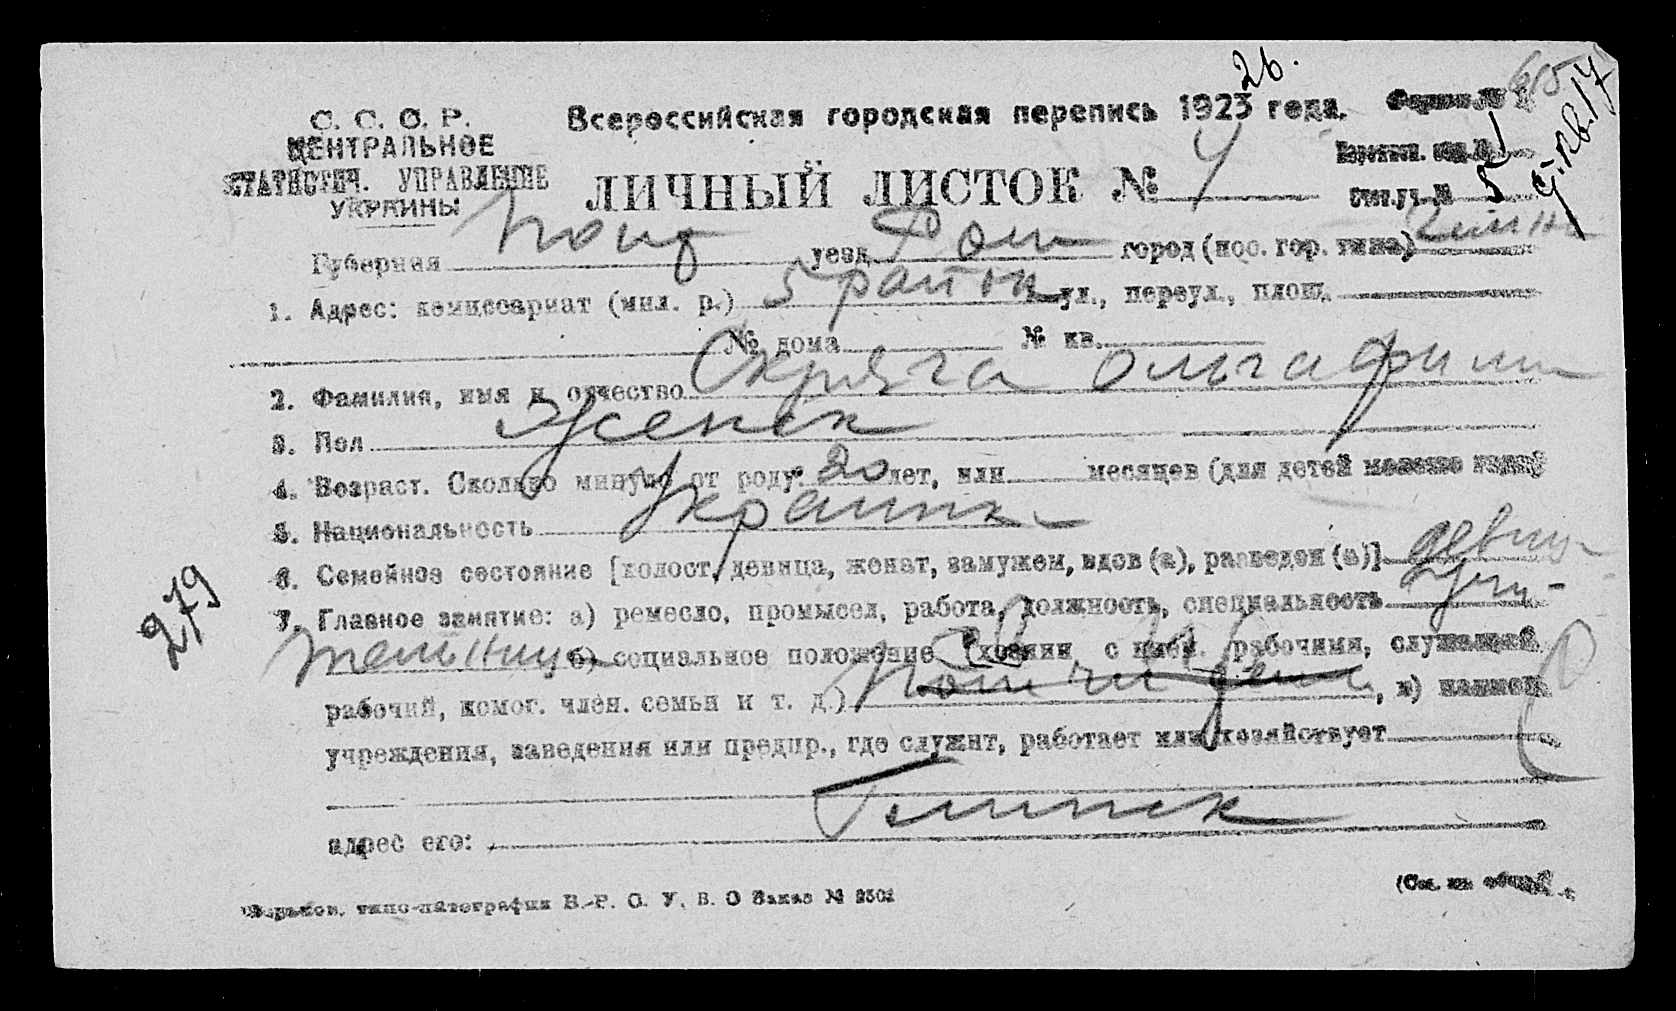 26.
С. С. С. Р.
ЦЕНТРАЛЬНОЕ
СТАТИСТИЧ. УПРАВЛЕНИЕ
УКРАИНЫ
Всероссийская городская перепись 1923 года.
ЛИЧНЫЙ ЛИСТОК № 4
Стат. уч. № 5
Губерния уезд Ром город (пос. гор. типа)
1. Адрес: комиссариат (мил. р.) 5 район ул., переул., площ.
№ дома № кв.
2. Фамилия, имя и отчество Скряга Ольга Фили
3. Пол Женск
4. Возраст. Сколько минуло от роду: 20 лет, или месяцев (для детей
5. Национальность Украинка
6. Семейное состояние [холост, девица, женат, замужем, вдов (а), разведен (а)] девиц
7. Главное занятие: а) ремесло, промысел, работа, должность, специальность Учи-
тельница б) социальное положение (хозяин с наем. рабочими, служащий
рабочий, помог. член. семьи и т. д.) , в) наимен.
учреждения, заведения или предпр., где служит, работает или хозяйствует
Глинск
адрес его:
279
типо-литография В.-Р. О. У. В. О Заказ № 2502
(См. на обор